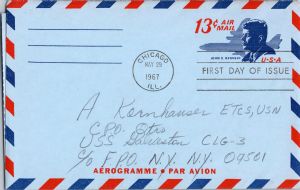 13¢ AIR MAIL
JOHN F. KENNEDY
U·S·A
CHICAGO
MAY 29
1967
ILL.
FIRST DAY OF ISSUE
A Kernhauser ETCS, USN
C.P.O. Qtrs
USS Galveston CLG-3
c/o F.P.O. N.Y. N.Y. 09501
AEROGRAMME • PAR AVION